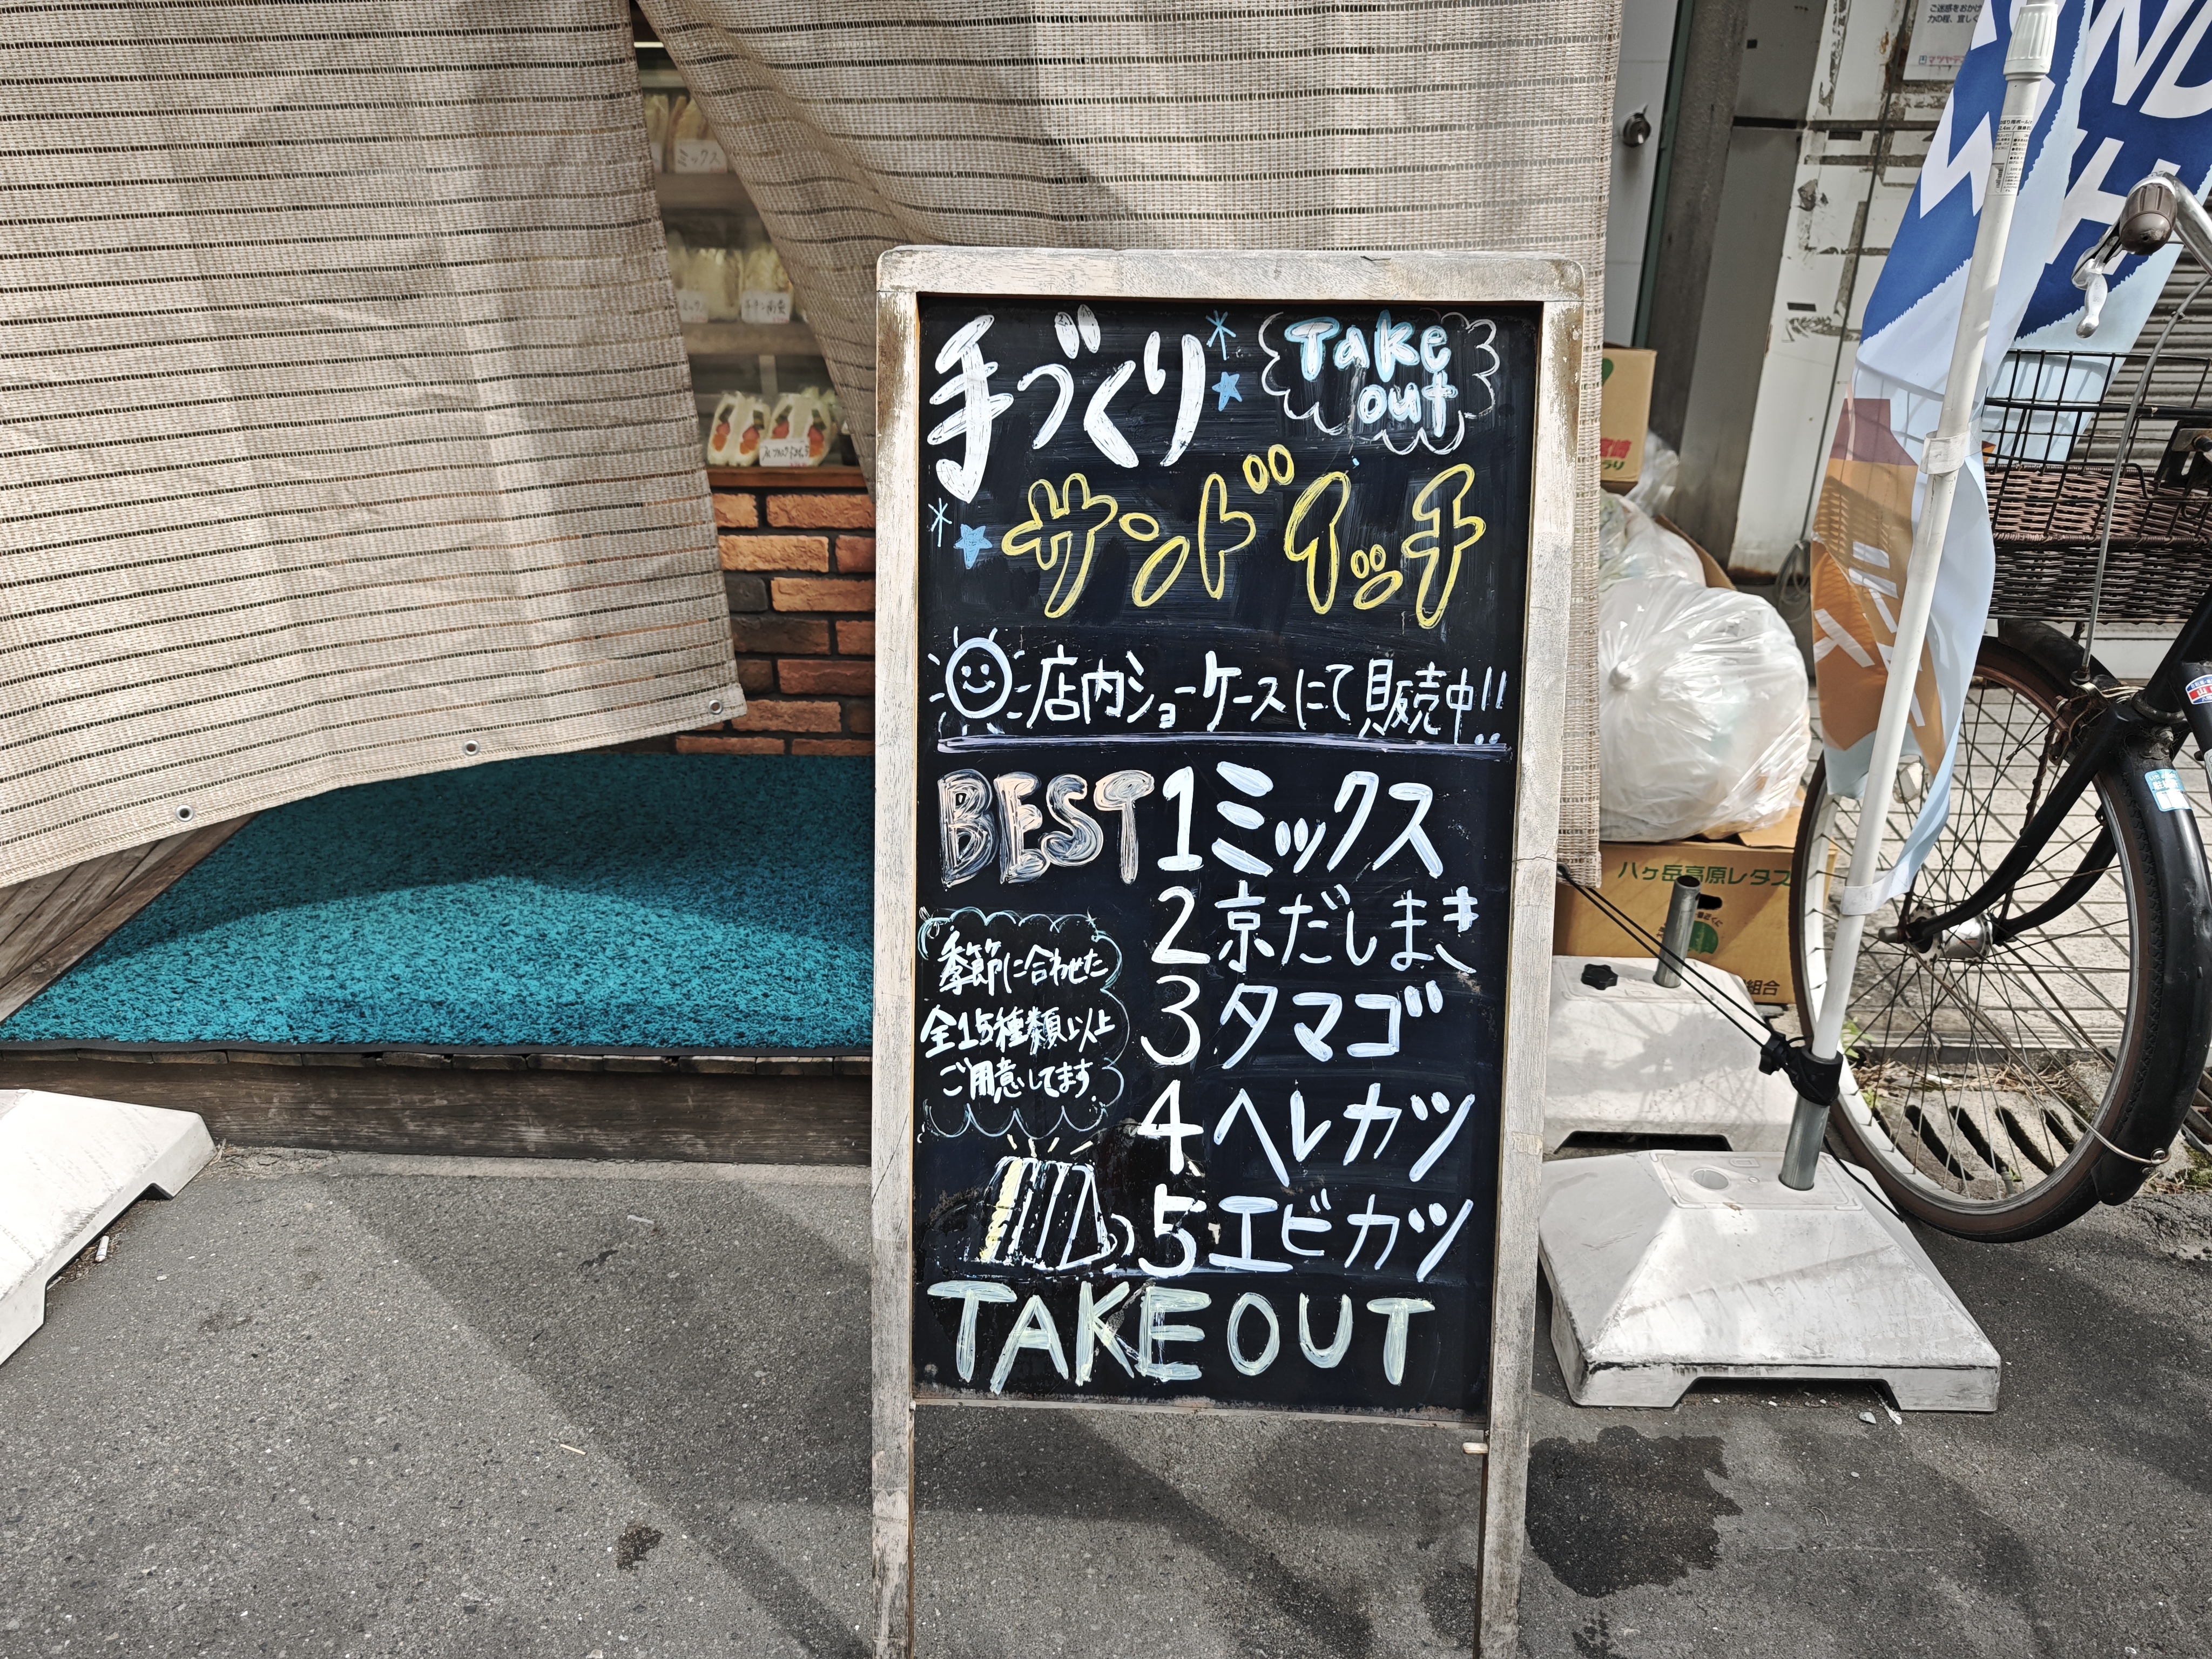 手づくり
Take out
サンドイッチ
店内ショーケースにて販売中!!
BEST 1 ミックス
2 京だしまき
3 タマゴ
4 ヘレカツ
5 エビカツ
季節に合わせた
全15種類以上
ご用意してます。
TAKE OUT
ミックス
八ヶ岳高原レタス
組合